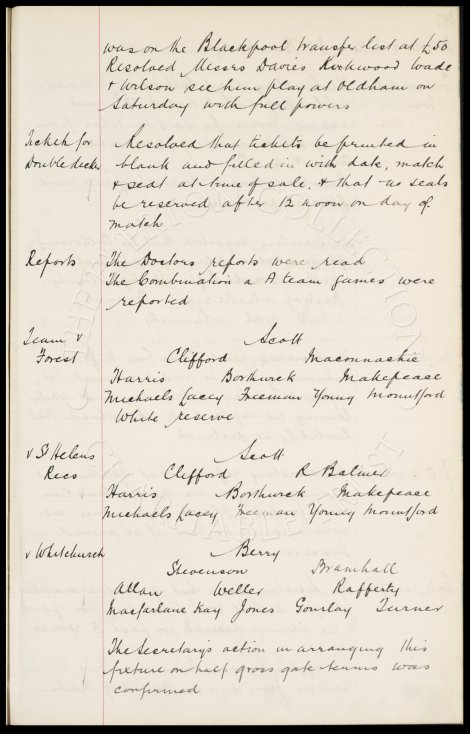 was on the Blackpool transfer list at £50
Resolved Messrs Davies Kirkwood Wade
& Wilson see him play at Oldham on
Saturday with full powers
Tickets for
Double decker
Resolved that tickets be printed in
blank and filled in with date, match
& seat at time of sale, & that no seats
be reserved after 12 noon on day of
match
Reports
The Doctors reports were read
The Combination & A team games were
reported
Team v
Forest
Scott
Clifford Maconnachie
Harris Borthwick Makepeace
Michaels Lacey Freeman Young Mountford
White reserve
v St Helens
Recs
Scott
Clifford R Balmer
Harris Borthwick Makepeace
Michaels Lacey Freeman Young Mountford
v Whitchurch
Berry
Stevenson Bramhall
Allan Weller Rafferty
Macfarlane Kay Jones Gourlay Turner
The Secretary's action in arranging this
fixture on half gross gate terms was
confirmed